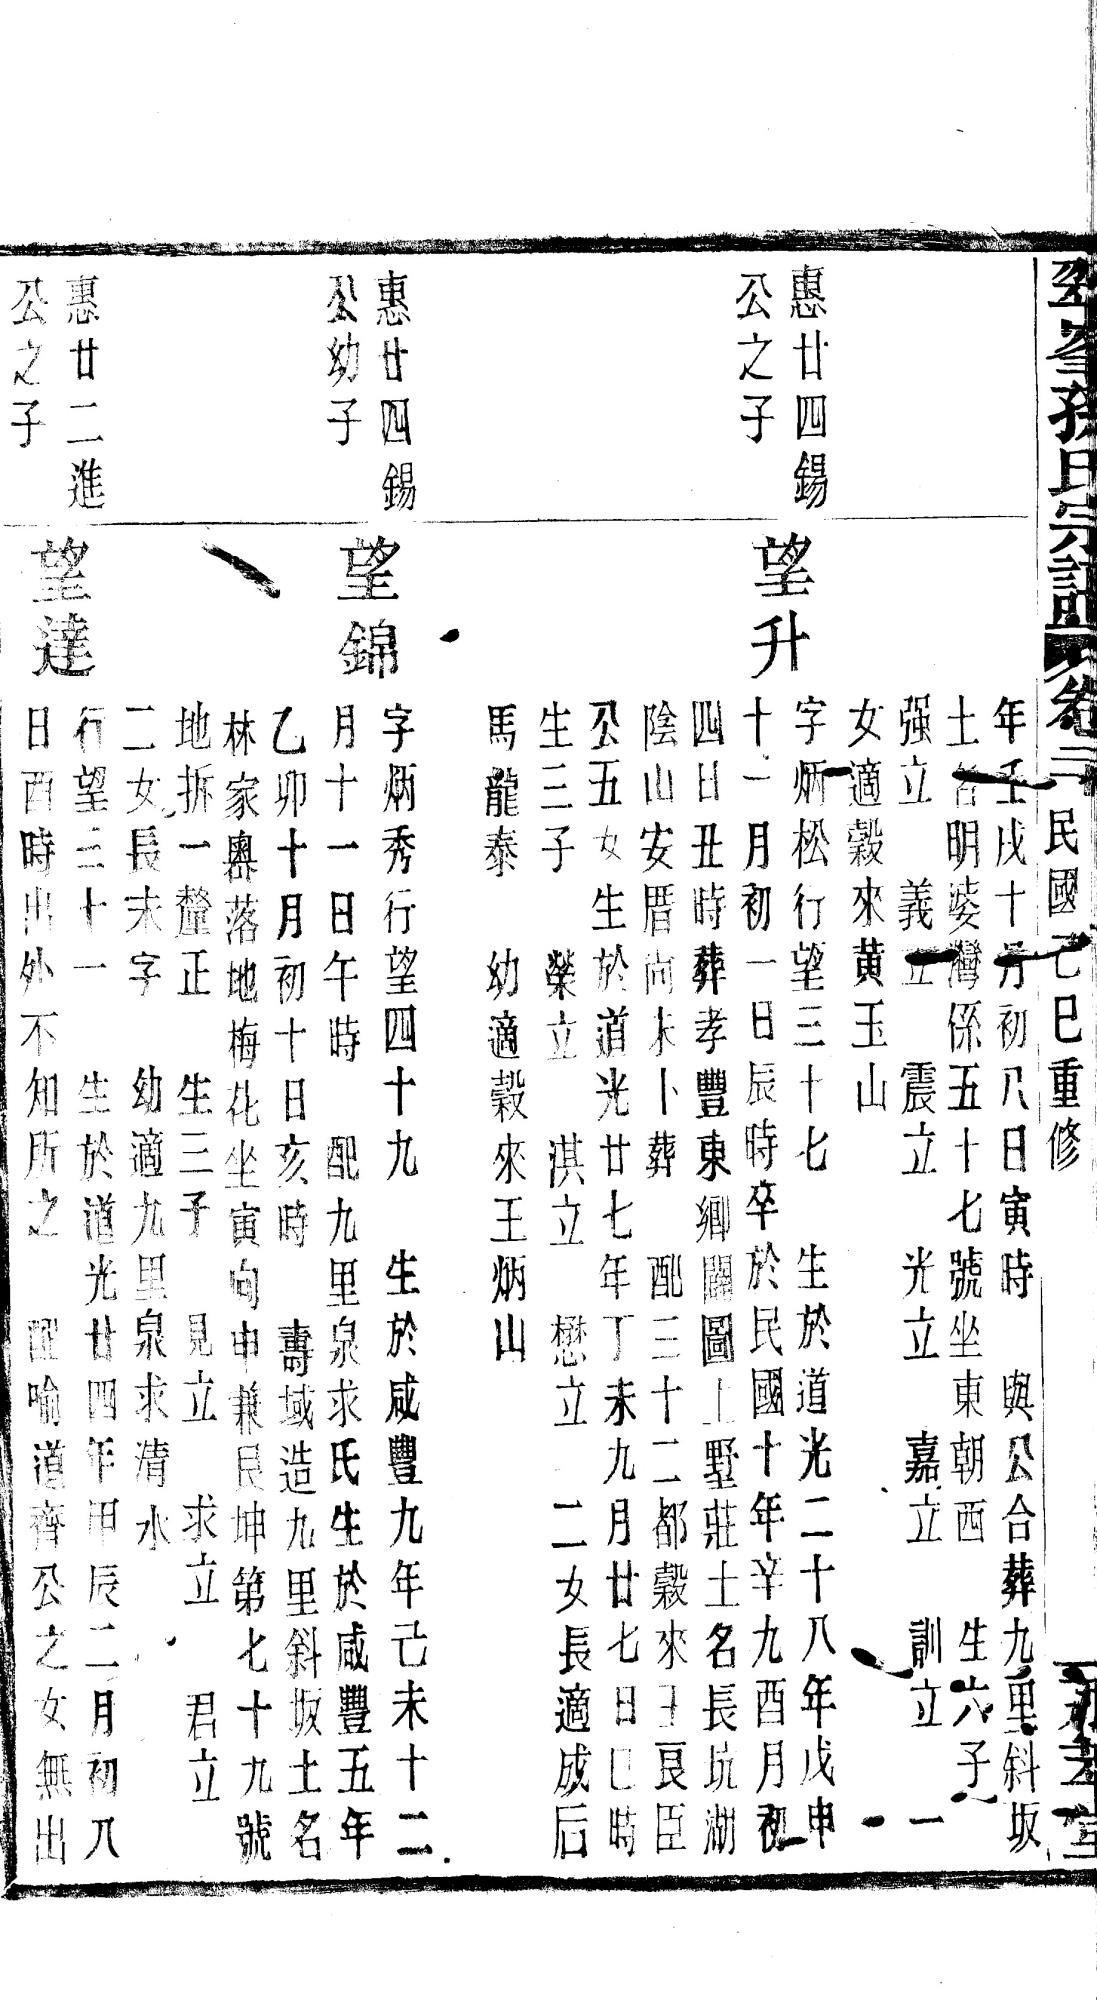 孫氏宗譜 卷二 民國己巳重修
年壬戌十月初八日寅時 與公合葬九里斜坂
土名明婆灣係五十七號坐東朝西 生六子
强立 義立 震立 光立 嘉立 訓立 一
女適榖來黄玉山
惠廿四錫
公之子
望升
字炳松行望三十七 生於道光二十八年戊申
十一月初一日辰時卒於民國十年辛酉九月初
四日丑時葬孝豐東鄉圖上墅莊土名長坑湖
陰山安厝向未卜葬 配三十二都榖來王良臣
公五女生於道光廿七年丁未九月廿七日巳時
生三子 榮立 淇立 懋立 二女長適成后
馬龍泰 幼適榖來王炳山
惠廿四錫
公幼子
望錦
字炳秀行望四十九 生於咸豐九年己未十二
月十一日午時 配九里泉求氏生於咸豐五年
乙卯十月初十日亥時 壽域造九里斜坂土名
林家奧落地梅花坐寅向申兼艮坤第七十九號
地拆一釐正 生三子 見立 求立 君立
二女長未字 幼適九里泉求清水
惠廿二進
公之子
望達
行望三十一 生於道光廿四年甲辰二月初八
日酉時出外不知所之 配喻道齊公之女無出